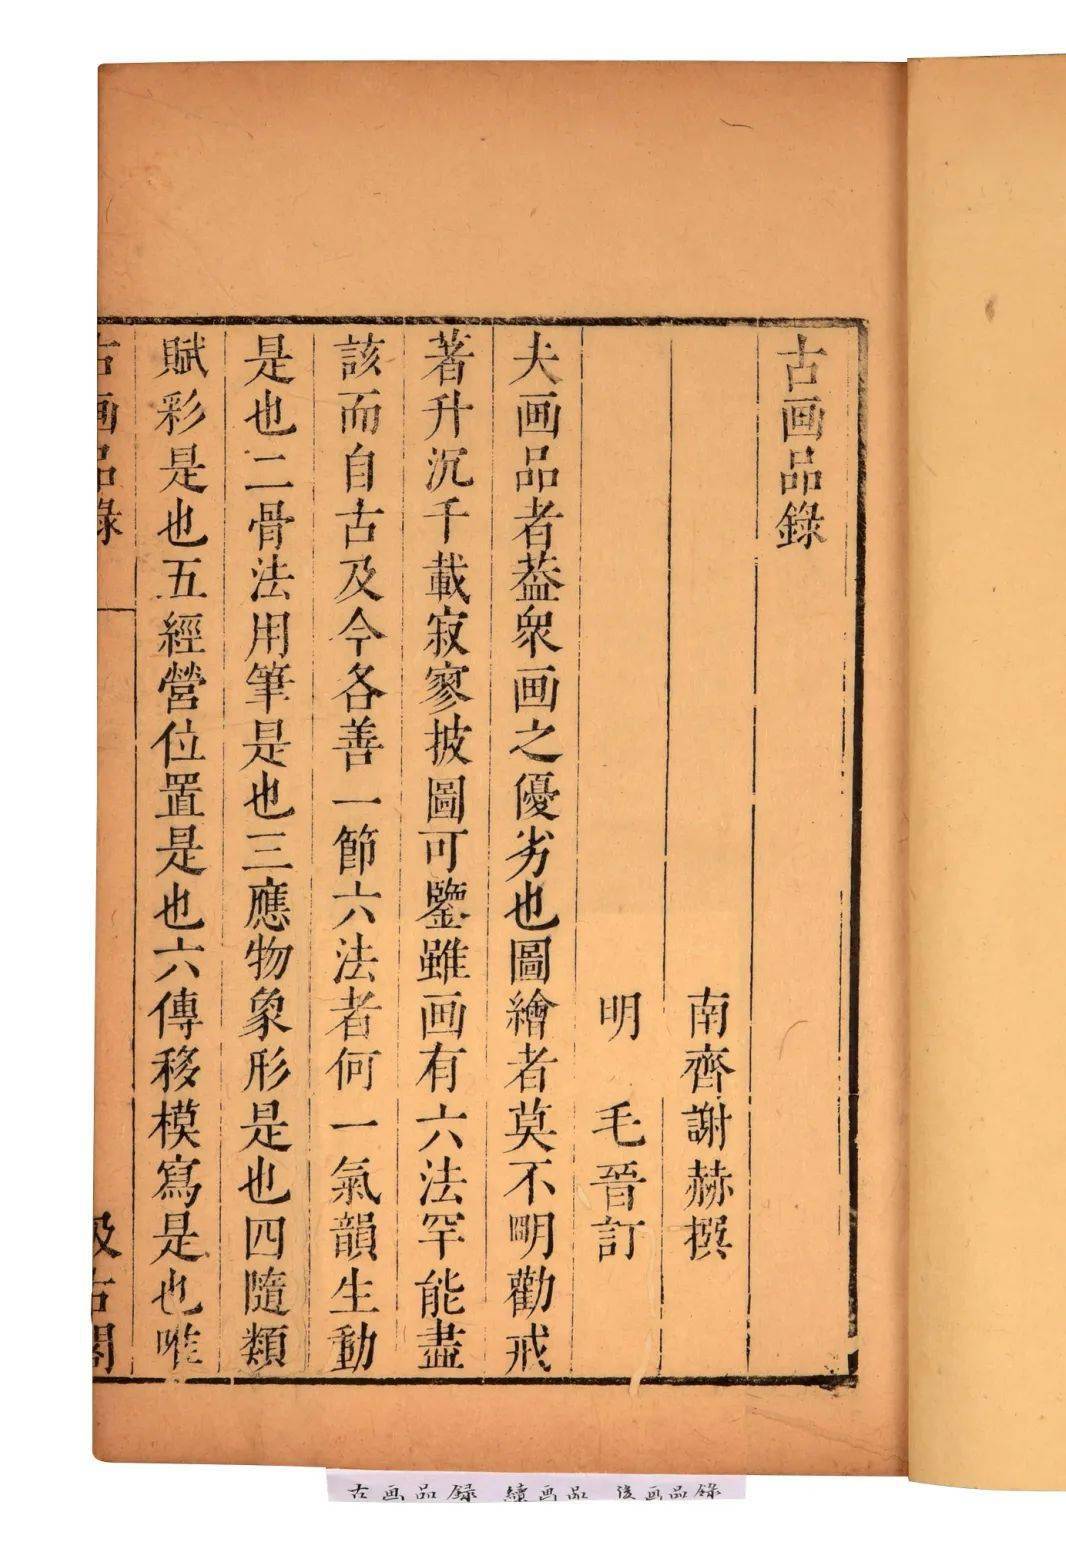 古画品錄
南齊謝赫撰
明 毛晉訂
夫画品者葢衆画之優劣也圖繪者莫不明勸戒
著升沉千載寂寥披圖可鑒雖画有六法罕能盡
該而自古及今各善一節六法者何一氣韻生動
是也二骨法用筆是也三應物象形是也四隨類
賦彩是也五經營位置是也六傳移模寫是也唯
古画品錄
汲古閣
古画品録 續画品 後画品録